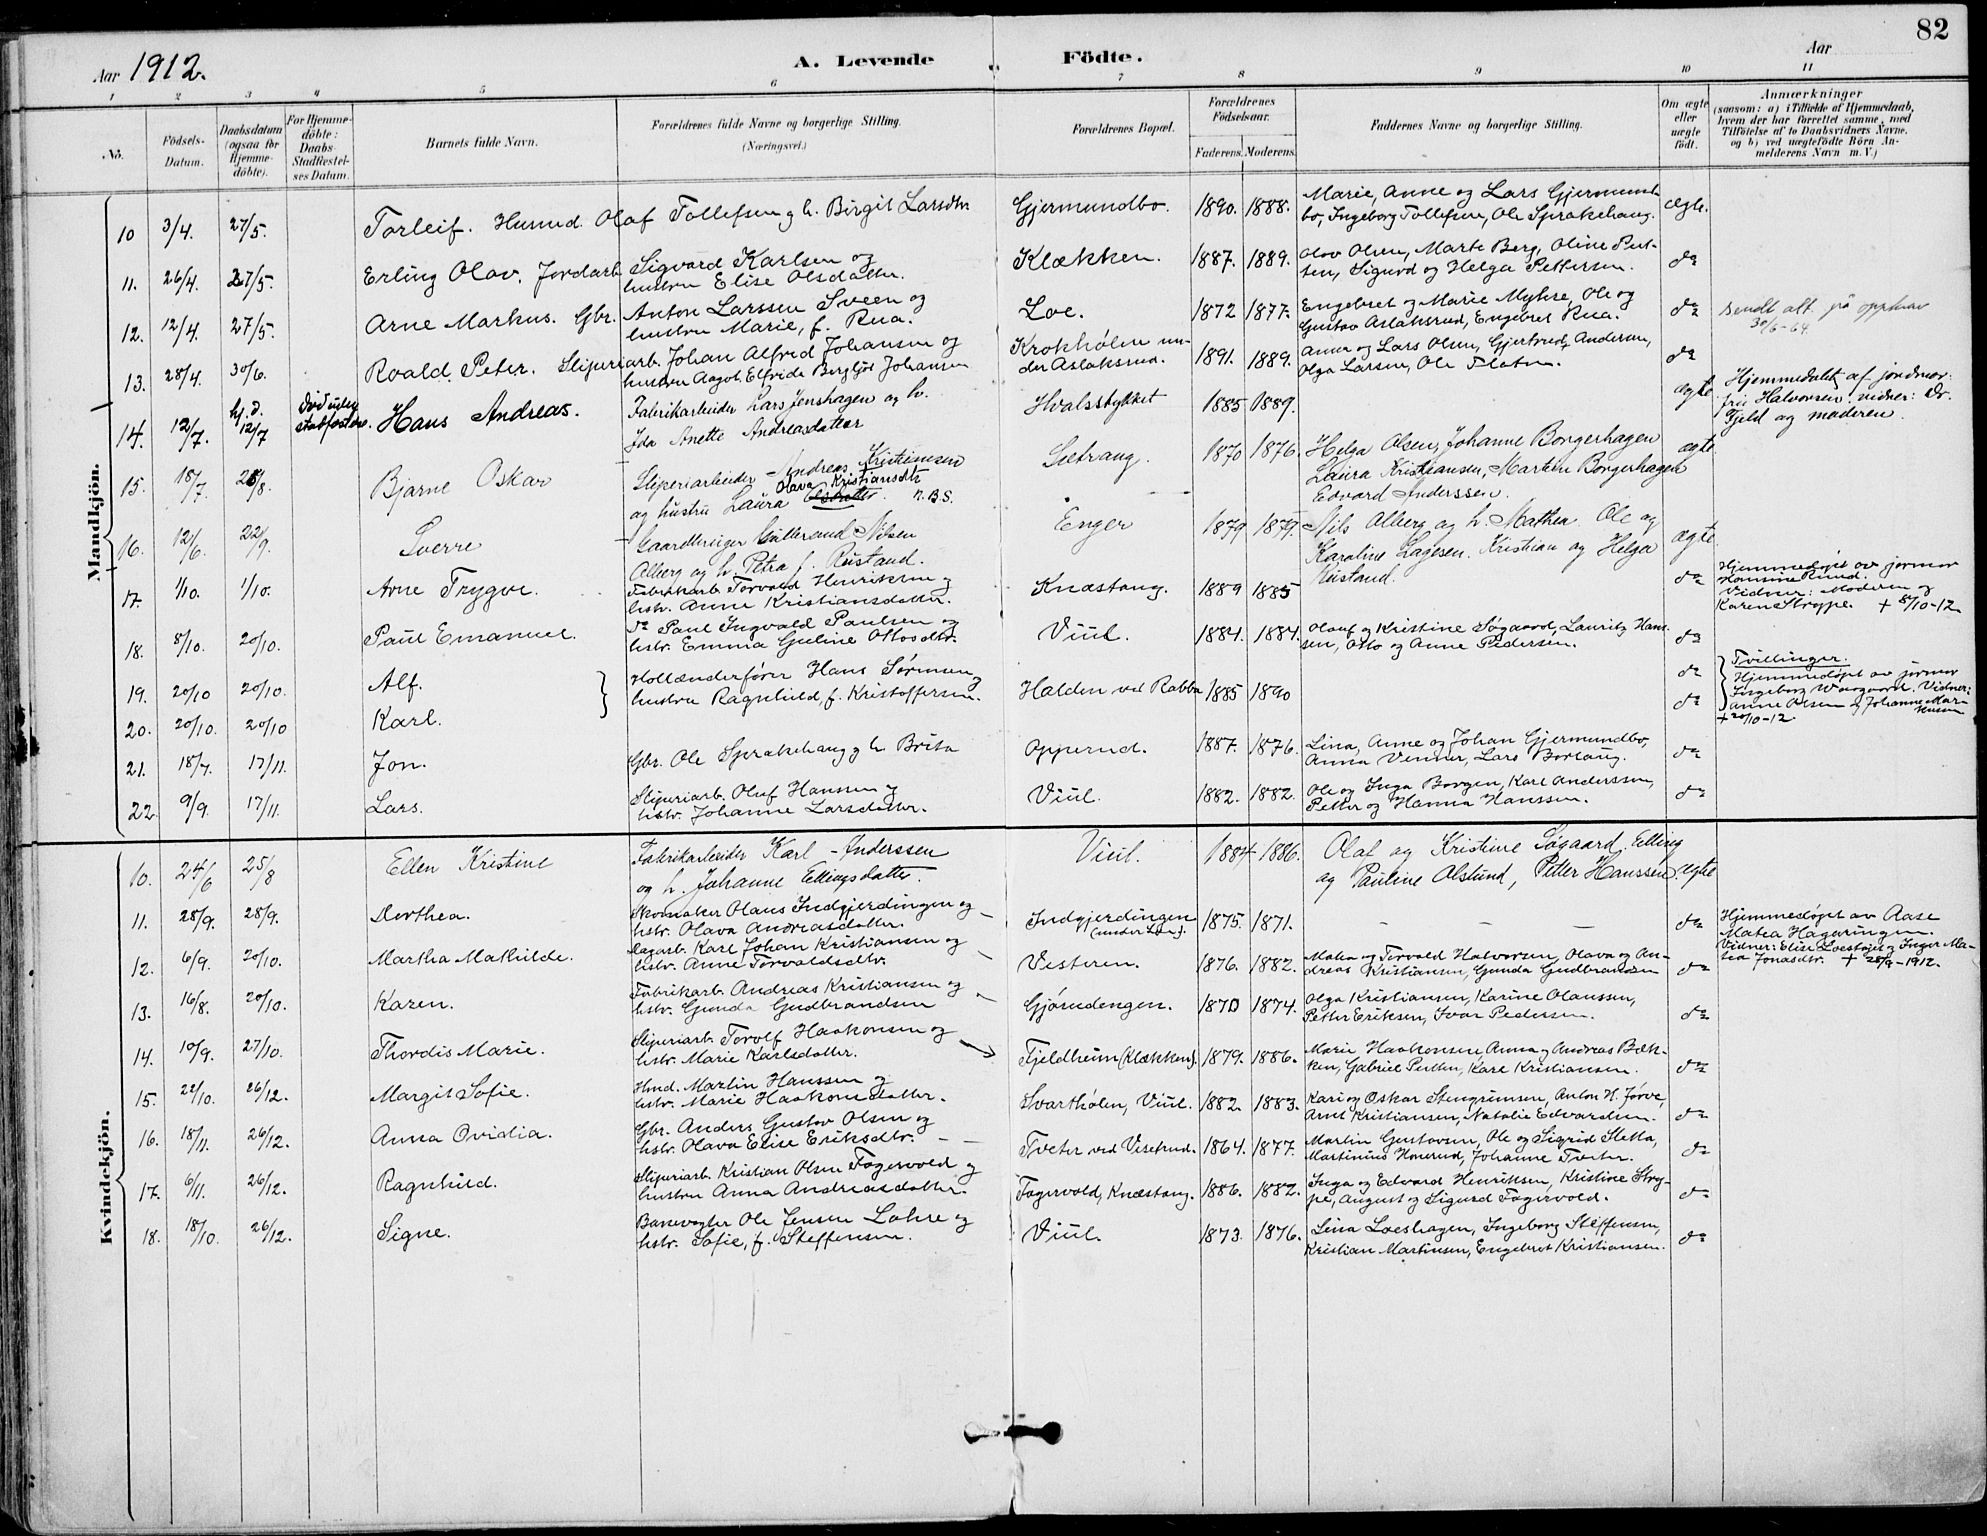 82
Aar 1912.
A. Levende Födte.
Aar
1 2 3 4 5 6 7 8 9 10 11
No.
Födsels-Datum.
Daabsdatum (ogsaa for Hjemme-döbte).
For Hjemme-döbte: Daabs-Stadfæstel-ses Datum.
Barnets fulde Navn.
Forældrenes fulde Navne og borgerlige Stilling. (Næringsvei.)
Forældrenes Bopæl.
Forældrenes Födselsaar.
Faderens. Moderens.
Faddernes Navne og borgerlige Stilling.
Om ægte eller uægte födt.
Anmærkninger
(saasom: a) i Tilfælde af Hjemmedaab, hvem der har forrettet samme, med Tilföielse af to Daabsvidners Navne. og b) ved uægtefödte Börn An-melderens Navn m. V.)
Mandkjön.
10 3/4. 27/5. Torleif. Husmd. Olaf Tollefsen og h. Birgit Larsdtr. Gjermundbo. 1890. 1888. Marie, Anne og Lars Gjermund-
bo, Ingeborg Tollefsen, Ole Sprakehaug. ægte.
11. 26/4. 27/5. Erling Olav. Jordarb. Sigvard Karlsen og
hustru Elise Olsdatter. Klækken. 1887. 1889. Olav Olsen, Marte Berg, Oline Pet-
tersen, Sigurd og Helga Pettersen. do
12. 12/4. 27/5. Arne Markus. Gbr. Anton Larssen Sveen og
hustru Marie, f. Rua. Loe. 1872 1877. Engebret og Marie Myhre, Ole og
Gustav Aslaksrud, Engebret Rua. do sendt att. på
30/6-64.
13. 28/4. 30/6. Roald Peter. Sliperiarb. Johan Alfred Johansen og
hustru Aagot Elfride Bergljot Johansen Krokhølen un-
der Aslaksrud. 1891. 1889. Anna og Lars Olsen, Gjertrud Andersen,
Olga Larsen, Ole Platen. do
14. 12/7. hj.d. 12/7 Død uden stadfæstelse. Hans Andreas. Fabrikarbeider Lars Jenshagen og h.
Ida Anette Andreasdatter Hvalsstykket 1885 1889. ægte Hjemmedøbt af jordmor
fru Halvorsen. vidner: Dr.
Fjeld og moderen.
15. 18/7. 25/8. Bjarne Oskar Sliperiarbeider Andreas Kristiansen
og hustru Laura Olava Kristiansdtr. n.B.S. Sætrang. 1870 1876. Helga Olsen, Johanne Borgerhagen
Laura Kristiansen, Marten Borgerhagen
Edvard Anderssen. ægte
16. 12/6. 22/9. Sverre Gaardbruger Gulbrand Nilsen
Alberg og h. Petra f. Rustand. Enger 1879 1879. Nils Alberg og h. Mathea. Ole og
Karoline Lagesen. Kristian og Helga
Rustand. ægte
17. 1/10. 1/10. Arne Trygve. Fabrikarb. Torvald Henriksen og
hstr. Anne Kristiansdatter. Knæstang. 1889 1885 do Hjemmedøpt av jormor
Hamine Ruud.
Vidner: Moderen og
Karen Stroppe. + 8/10-12
18. 8/10. 20/10. Paul Emanuel. do Paul Ingvald Paulsen og
hstr. Emma Guline Ottosdtr. Viul. 1884. 1884. Olauf og Kristine Søgaard, Lauritz Han-
sen, Otto og Anne Pedersen. do
19. 20/10 20/10. Alf. Hollænderfører Hans Sørensen og
hustru Ragnhild, f. Kristoffersen. Halden ved Rabba 1885 1890 do Tvillinger.
Hjemmedøpt av jormor
Ingeborg Waagaard. Vidner:
Anne Olsen og Johanne Mar-
kusen
+ 20/10-12
20. 20/10. 20/10 Karl. do
21. 18/7. 17/11. Jon. Gbr. Ole Sprakehaug og h. Brita Opperud. 1887. 1876. Lina, Anne og Johan Gjermundbo,
Anna Venner, Lars Bortaug. do
22. 9/9. 17/11. Lars. Sliperiarb. Oluf Hanssen og
hstr. Johanne Larsdatter. Viul. 1882. 1882. Ole og Inga Borgen, Karl Anderssen,
Petter og Hanna Hanssen. do
Kvindekjön.
10. 24/6 25/8 Ellen Kristine Fabrikarbeider Karl Anderssen
og h. Johanne Ellingsdatter. Viul. 1884 1886. Olaf og Kristine Søgaard. Elling
og Pauline Olslund, Petter Hanssen. ægte
11. 28/9. 28/9. Dorthea. Skomaker Olaus Indgjerdingen og
hstr. Olava Andreasdatter. Indgjerdingen
(under Loe). 1875. 1871. do Hjemmedøpt av Aase
Matea Hageringen.
Vidner: Elise Loestøjet og Inger Ma-
tea Jonasdtr. + 28/9-1912.
12. 6/9. 20/10. Martha Mathilde. Dagarb. Karl Johan Kristiansen og
hstr. Anne Torvaldsdtr. Vesteren. 1876. 1882. Matea og Torvald Halvorsen, Olava og An-
dreas Kristiansen, Gunda Gudbrandsen do
13. 16/8. 20/10. Karen. Fabrikarb. Andreas Kristiansen og
hstr. Gunda Gudbrandsen Gjørudengen. 1870 1874. Olga Kristiansen, Karine Olaussen,
Petter Eriksen, Ivar Pedersen. do
14. 10/9. 27/10. Thordis Marie. Sliperiarb. Torolf Haakonsen og
hstr. Marie Karlsdatter. Fjeldheim (Klækken). 1879. 1886. Marie Haakonsen, Anna og Andreas Bæk-
ken, Gabriel Petten, Karl Kristiansen. do
15. 22/10. 26/12. Margit Sofie. Hmd. Martin Hanssen og
hstr. Marie Haakonsdatter. Svarthølen, Viul. 1882. 1883. Kari og Oskar Stengrimsen, Anton H. Jørve,
Arnt Kristiansen, Natalie Edvardsen. do
16. 18/11. 26/12. Anna Ovidia. Gbr. Anders Gustav Olsen og
hstr. Olava Elise Eriksdtr. Tveter ved Viserud. 1864. 1877. Martin Gustavsen, Ole og Sigrid Sletta,
Martinius Honerud, Johanne Tveter. do
17. 6/11. 26/12. Ragnhild. Sliperiarb. Kristian Olsen Fagervold og
hustru Anna Andreasdatter. Fagervold, Knæstang. 1886. 1882. Inga og Edvard Henriksen, Kristine Strop-
pe, August og Sigurd Fagervold. do
18. 18/10. 26/12. Signe. Banevogter Ole Jensen Lohre og
hstr. Sofie, f. Steffensen. Viul. 1873. 1876. Lina Loeshagen, Ingeborg Steffensen,
Kristian Martinsen, Engebret Kristiansen. do